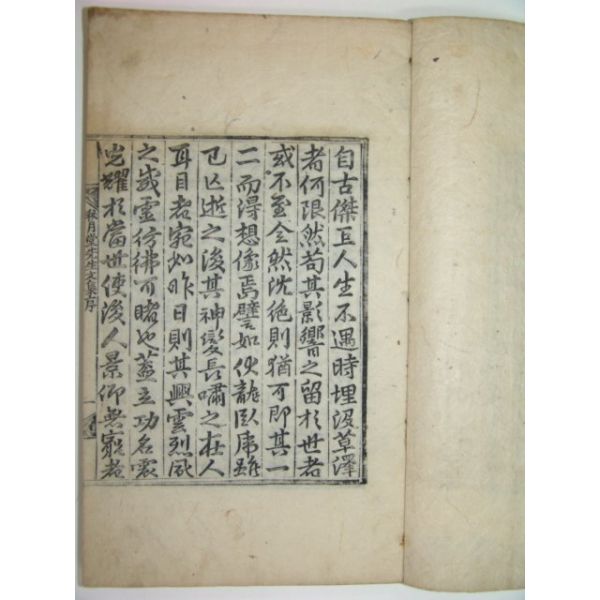 自古傑巨人生不遇時埋沒草澤
者何限然苟其影響之留於世者
或不至全然沈絶則猶可即其一
二而得想像焉譬如伏龍臥虎雖
已亡逝之後其神變長嘯之在人
耳目者宛如昨日則其興雲烈風
之威靈彷彿可睹也蓋立功名震
光耀於當世使後人景仰無窮者
秋月堂先生文集序
一